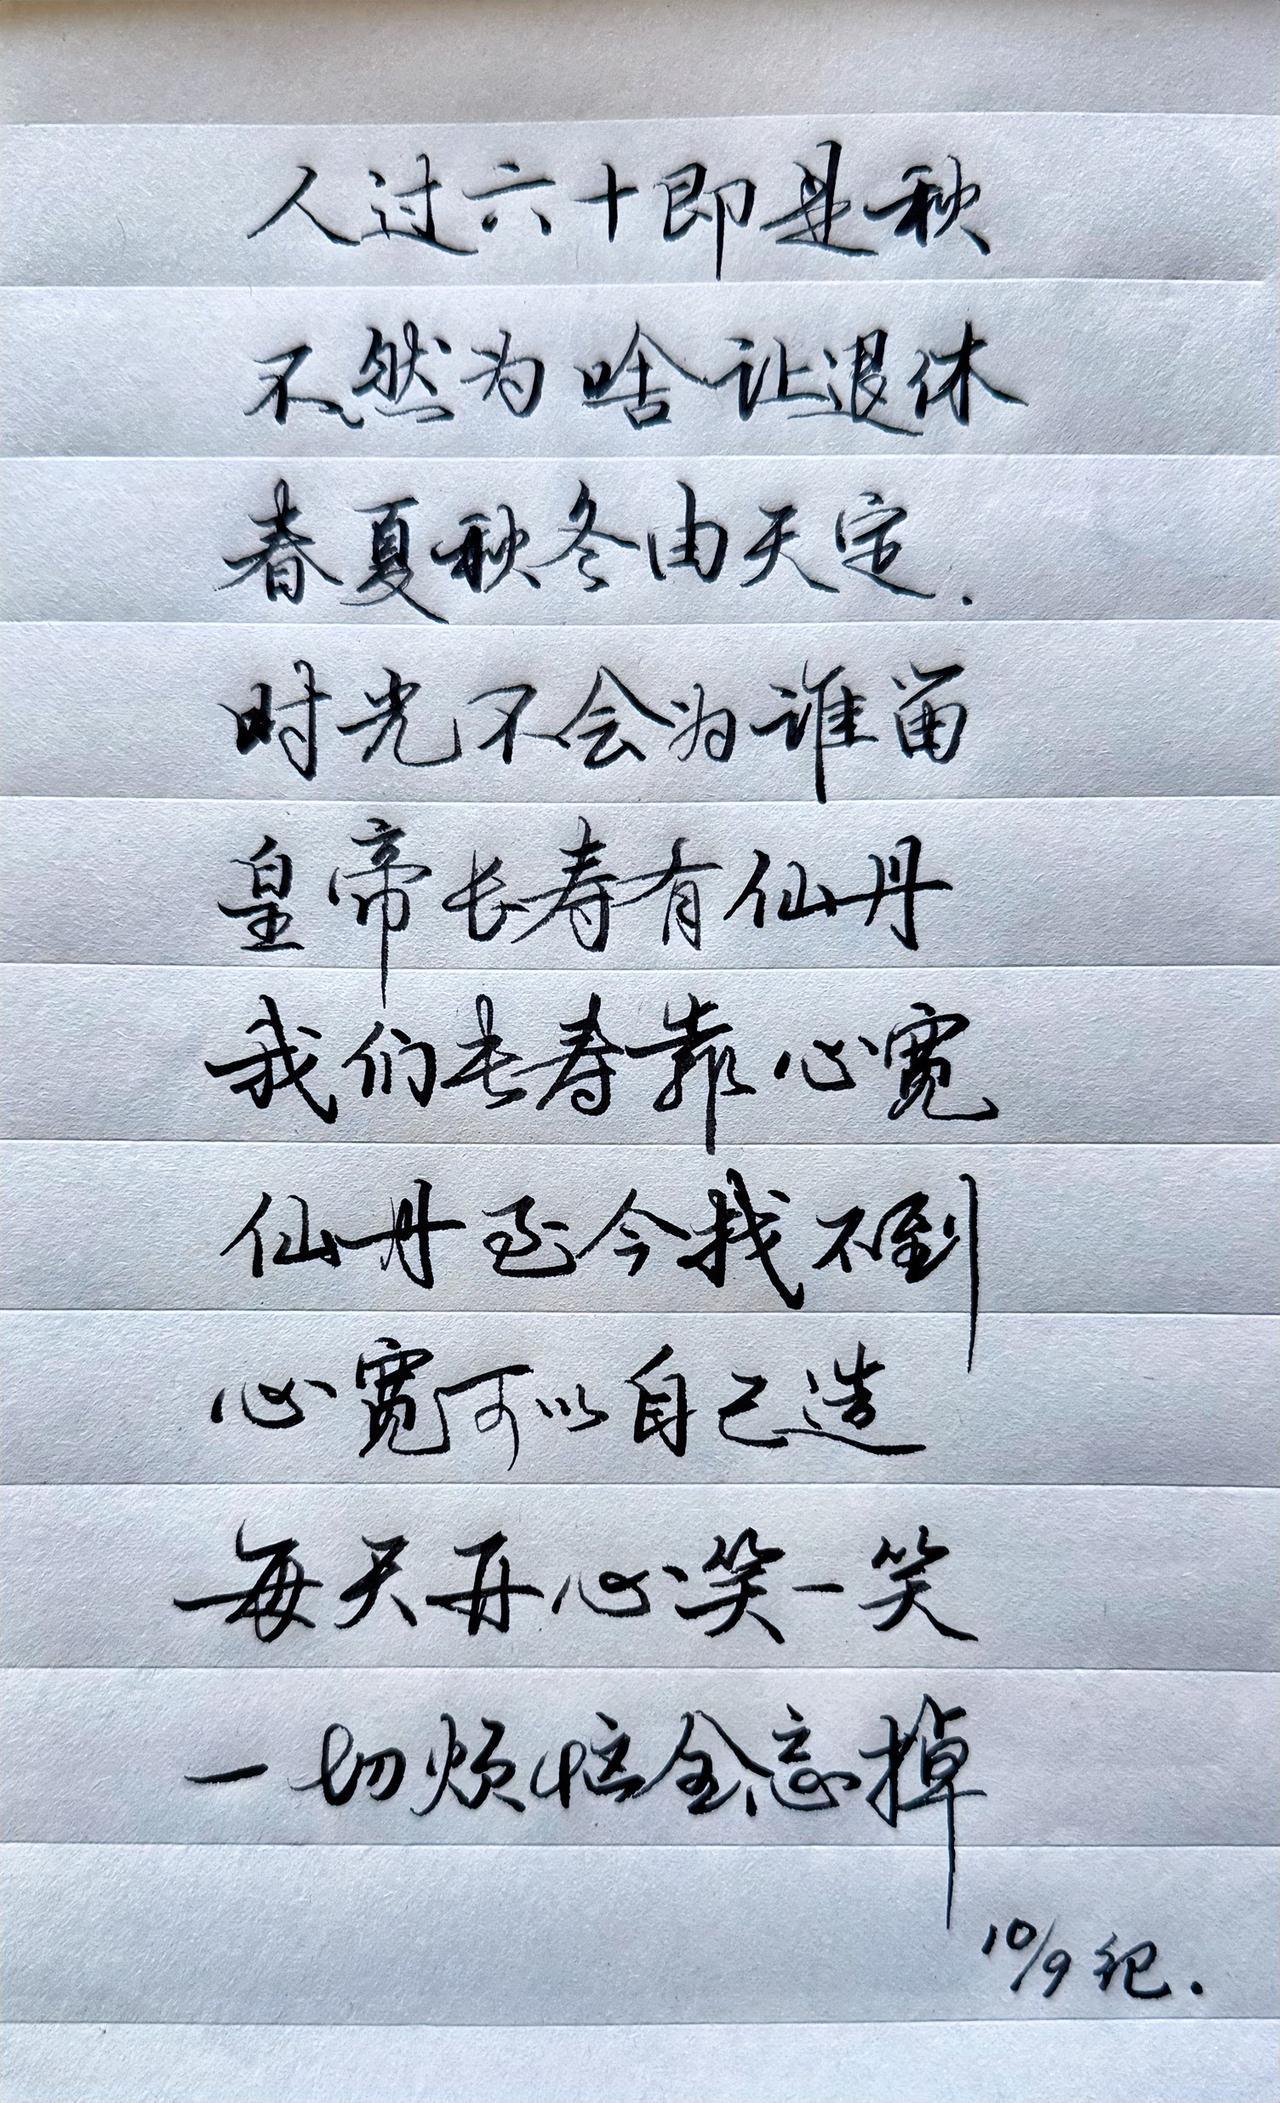 人过六十即是秋
不然为啥让退休
春夏秋冬由天定.
时光不会为谁留
皇帝长寿有仙丹
我们长寿靠心宽
仙丹至今找不到
心宽可以自己造
每天开心笑一笑
一切烦恼全忘掉
10/9 纪.